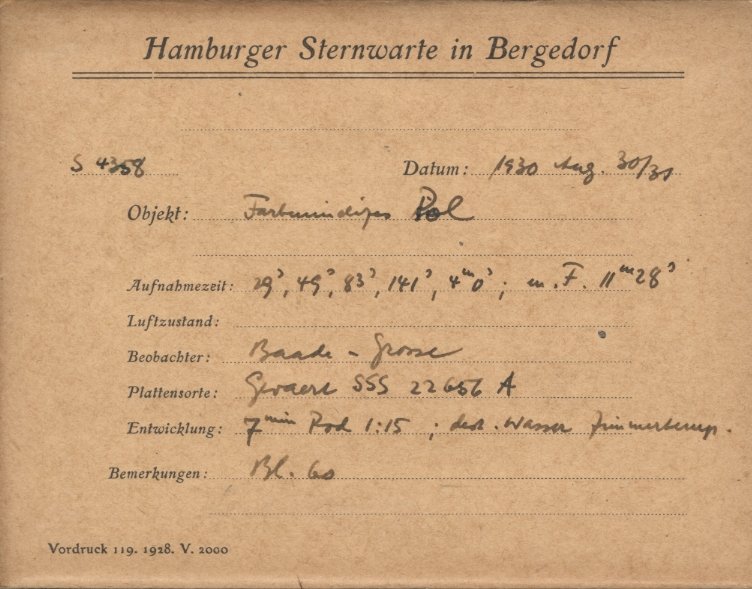 Hamburger Sternwarte in Bergedorf
S 4358 Datum: 1930 Aug. 30/31
Objekt: Farbenindizes Pol
Aufnahmezeit: 29ˢ, 49ˢ, 83ˢ, 141ˢ, 4ᵐ0ˢ; m. F. 11ᵐ28ˢ
Luftzustand:
Beobachter: Baade - Grosse
Plattensorte: Gevaert SSS 22656 A
Entwicklung: 7ᵐⁱⁿ Rod 1:15 ; dest. Wasser Zimmertemp.
Bemerkungen: Bl. 60
Vordruck 119. 1928. V. 2000